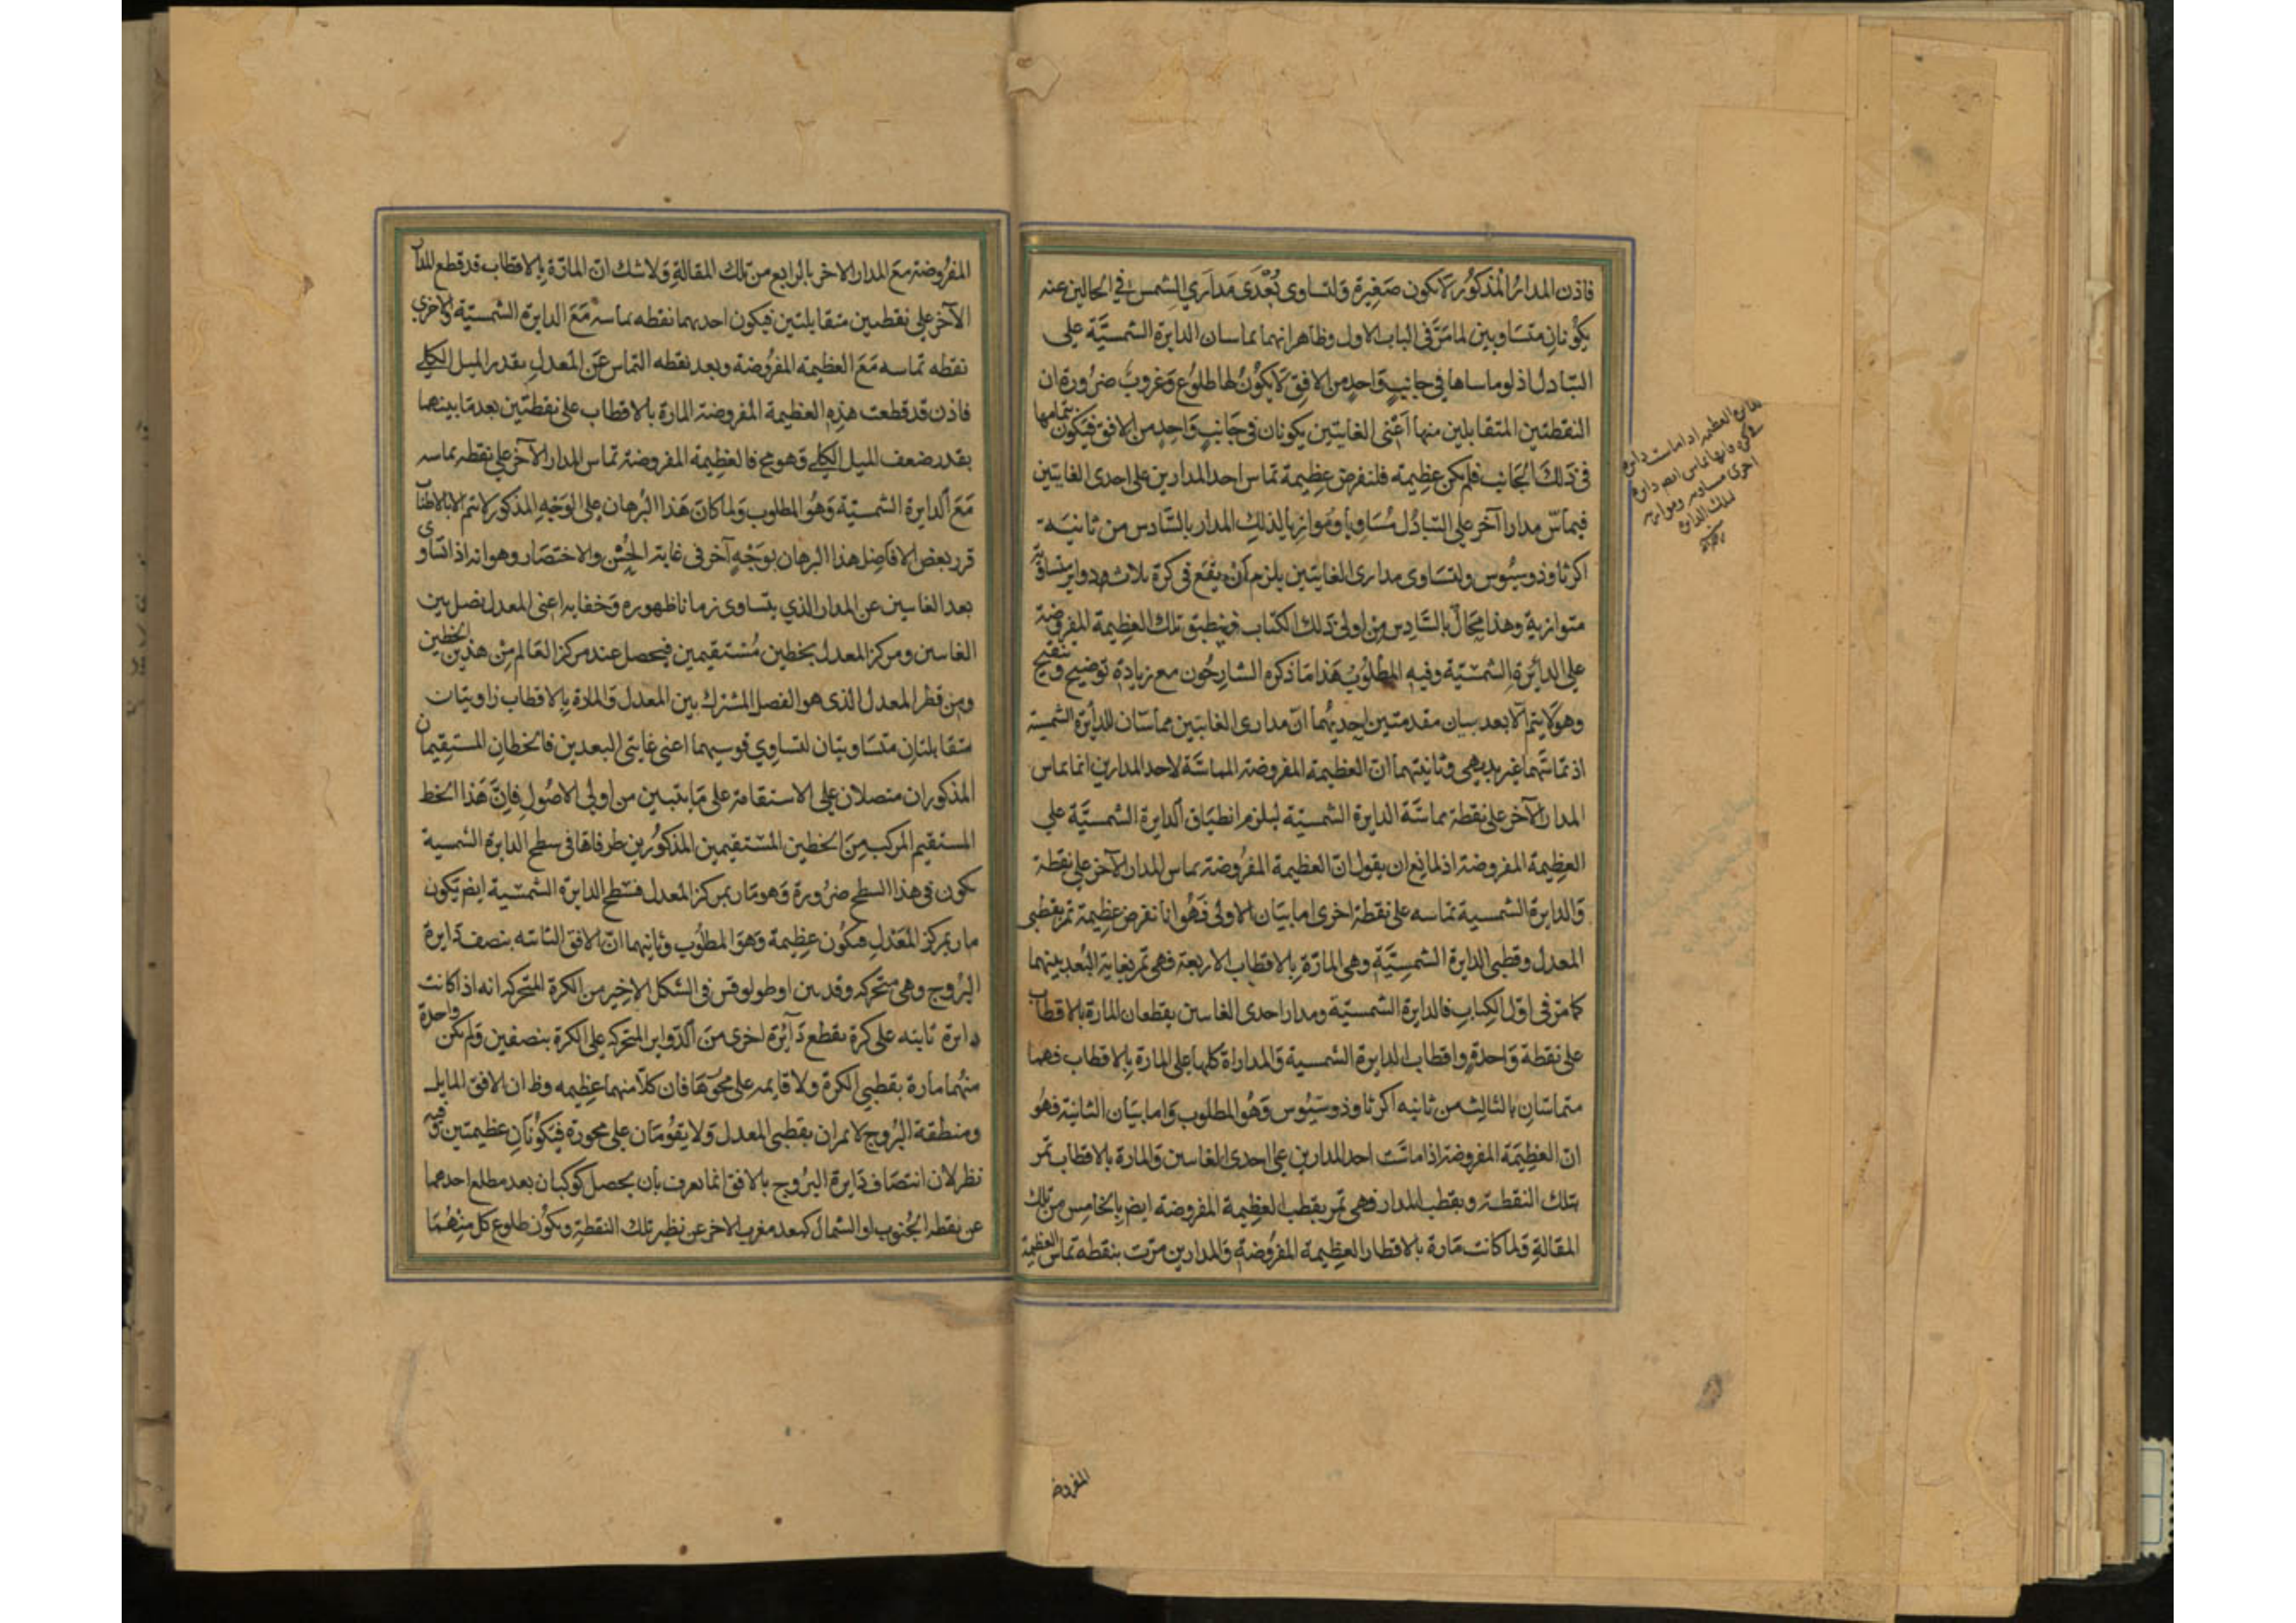 فاذن المدار المذكور لا يكون صغيرة ولتساوى بُعْدَى مَدارَي الشمس في الحالين عنه
يكونانِ متساويين لما مَرَّ فى الباب الاول وظاهر انهما يماسان الدايرة الشمسيَّة على
التبادل اذ لو ماساها في جانبٍ وَاحدٍ من الافق لَا يكوُنُ لها طلوُع وَغروبٌ ضروُرة ان
النقطتين المتقابلين منها اَعنى الغايتين يكونان فى جَانبٍ وَاحدٍ من الافق فيكون بتمامها
فى ذلكَ الجَانب فلم يكن عظيمه فلنفرض عظيمة تماس احد المدارين على احدى الغايتين
فيماسّ مدارا آخر على التبادُل مُسَاوياً وَمُوازياً لذلك المدار بالسَّادس من ثانيَة
اكر ثاوذوسيُوس ولتسَاوى مدارى الغايتين يلزم اَنْ يقع فى كرة ثلاث دواير متساوية
متوازية وهذا محالٌ بالسَّادس من اولى ذلك الكتاب فينطبق تلك العظيمة المفروضة
على الدائرة الشمسيّة وفيه المطلوُبُ هَذا مَا ذكره الشارحُون مع زيادة توضيح وتنقيح
وهو لَا يتم الّا بعد بيان مقدمتين احديهُما انّ مدارى الغايتين مماسّان للدايرة الشمسية
اذ تماسَّهما غير بديهى وثانيتهما انّ العظيمة المفروضة المماسَّة لاحد المدارين انما يماس
المدار الآخر على نقطة مماسَّة الدايرة الشمسيّة ليلزم انطبَاق الدايرة الشمسيَّة علي
العظيمة المفروضة اذ لمانع ان يقول انّ العظيمة المفرُوضة يماس المدار الآخر على نقطة
وَالدايرة الشمسية تماسه على نقطة اخرى اما بيَان الاولى فَهُوَ انا نفرض عظيمة تمر بقطبى
المعدل وقطبى الدايرة الشمسيَّة وهى المارّة بالاقطاب الاربعة فهى تمر بغاية البُعد بينهما
كما مرّ فى اوّل الكتابِ فالدايرة الشمسيّة ومدار احدى الغايتين يقطعان المارة بالاقطاب
على نقطة وَاحدةٍ واقطاب الدايرة الشمسية وَالمداراة كلها على المارة بالاقطاب فهما
متماسّانِ بالثالث من ثانيه اكر ثاوذوسيُوس وَهُو المطلوب وَاما بيَان الثانية فهُو
ان العظيمَة المفروضة اذا ماسَّت احد المدارين على احدى الغايتين وَالمارة بالاقطاب تمر
بتلك النقطة وبقطب المدار فهى تمر بقطب العظيمة المفروضة ايضا بالخامس من تلك
المقالةِ وَلما كانت مَارة بالاقطار العظيمة المفرُوضةِ وَالمدارين مرّت بنقطه تماس العظيمة
المفروض
المفرُوضة معَ المدار الاخر بالرابع من تلك المقالةِ وَلا شك انّ المارّة بالاقطاب قد قطع المدار
الآخر على نقطتين متقابلتين فيكون احديهما نقطه تماسه مَعَ الدايرة الشمسيّة والاخرى
نقطه تماسه مَعَ العظيمه المفرُوضة وبعد نقطه التماس عَن المعدلِ بقدر الميل الكلي
فاذن قد قطعت هذه العظيمة المفروضة المارة بالاقطاب على نقطتين بعد مَا بينهما
بقدر ضعف الميل الكلي وَهو مح فالعظيمة المفروضة تماس المدار الآخر على نقطه تماسه
مَعَ الدايرة الشمسيّة وَهُو المطلوب وَلما كانَ هَذا البُرهان على الوَجْهِ المذكور لا يتم الا بالاطناب
قرر بعض الافاضِل هذا البرهان بوَجْهٍ آخر فى غاية الحُسْن والاختصَار وهو انه اذا تساوى
بعد الغايتين عن المدار الذي يتساوى زمانا ظهوره وَخفايه اعنى المعدل نصل بين
الغايتين ومركز المعدل بخطين مُسْتقيمين فيحصل عند مركز العَالم مِن هذين الخطين
ومن قطر المعدل الذى هو الفصل المشترك بين المعدل وَالمارة بالاقطاب زاويتان
متقابلتان متسَاويتان لتساوِي قوسيهما اعنى غايتى البعدين فالخطانِ المستقيمان
المذكوران متصلان على الاستقامة على مَا يتبين من اولى الاصُول فاِنَّ هَذا الخط
المستقيم المركب مِنَ الخطين المسْتقيمين المذكورين طرفاها فى سطح الدايرة الشمسية
يكون فى هذا السطح ضرُورة وَهو مَار بمركز المعدل فسَطح الدايرة الشمسية ايضا يكون
مار بمركز المعَدلِ فيكُون عظيمة وَهوَ المطلُوب وثانيهما انّ الافق الثابته ينصف دايرة
البُروج وهى متحركه وقد بين اوطولوقس فى الشكل الاخِير من الكرة المتحركه انه اذا كانت
دايرة ثابته على كرة يقطع دَآيرُة اخرى منَ الدّواير المتحركه على الكرة بنصفين وَلم يكن واحدة
منهُما مارة بقطبى الكرة ولا قايمه على محوَرهَا فان كلّا منهما عظيمه وظ ان الافق المايل
ومنطقة البُروج لا يمران بقطبى المعدل وَلا يقوُمَان على محورة فيَكوُنَانِ عظيمتين وَفيه
نظر لان انتصَاف دَايرة البُروج بالافق انما يعرف بأن يحصل كوكبان بعد مطلع احدهما
عن نقطه الجُنوب او الشمال كبعد مغرب الاخر عن نظير تلك النقطةِ ويكوُن طلوع كل مِنهُمَا